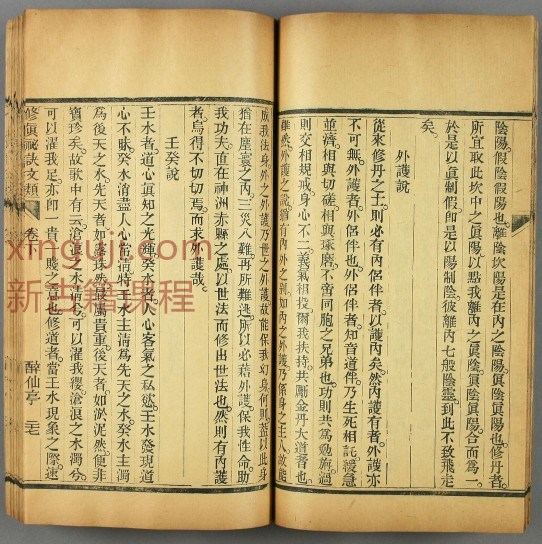 陰陽。假陰假陽也。離陰坎陽。是在內之陰陽。眞陰眞陽也。修丹者。
所宜取此坎中之眞陽。以點我離內之眞陰。眞陰眞陽合而爲一。
於是以眞制假。卽是以陽制陰。彼離內七般陰靈。到此不致飛走
矣。
外護說
從來修丹之士。則必有內侶伴者。以護內矣。然內護有者。外護亦
不可無。外護者。外侶伴也。外侶伴者。知音道伴。乃生死相託。緩急
並濟。相與切磋。相與琢磨。不啻同胞之兄弟也。功則共爲勉旃。過
則交相規戒。身心不二。義氣相投。爾我扶持。共勵金丹大道者也。
雖然。外護之說。猶有內外之別。如內之外護。乃係身之主人。故能
成我法身。外之外護。乃世之外護。故能保我幻身。何則。蓋以此身
猶在塵寰之內。三災八難。再所難逃。所以必藉外護。保我性命。助
我功夫。直在神洲赤縣之處。以世法而修出世法也。然則有內護
者。烏得不切切焉。而求外護哉。
壬癸說
壬水者。道心眞知之光輝。癸水者。人心客氣之私慾。壬水發現。道
心不昧。癸水消盡。人心常清。特壬水主清。爲先天之水。癸水主濁。
爲後天之水。先天者如落珠。然最屬貴重。後天者如淤泥。然便非
寶珍矣。故歌中有云。滄浪之水清兮。可以濯我纓。滄浪之水濁兮。
可以濯我足。亦卽一貴一賤之意也。修道者。當壬水現象之際。速
修眞祕訣文類 卷下 醉仙亭 三七
xinguji.com
新古籍课程